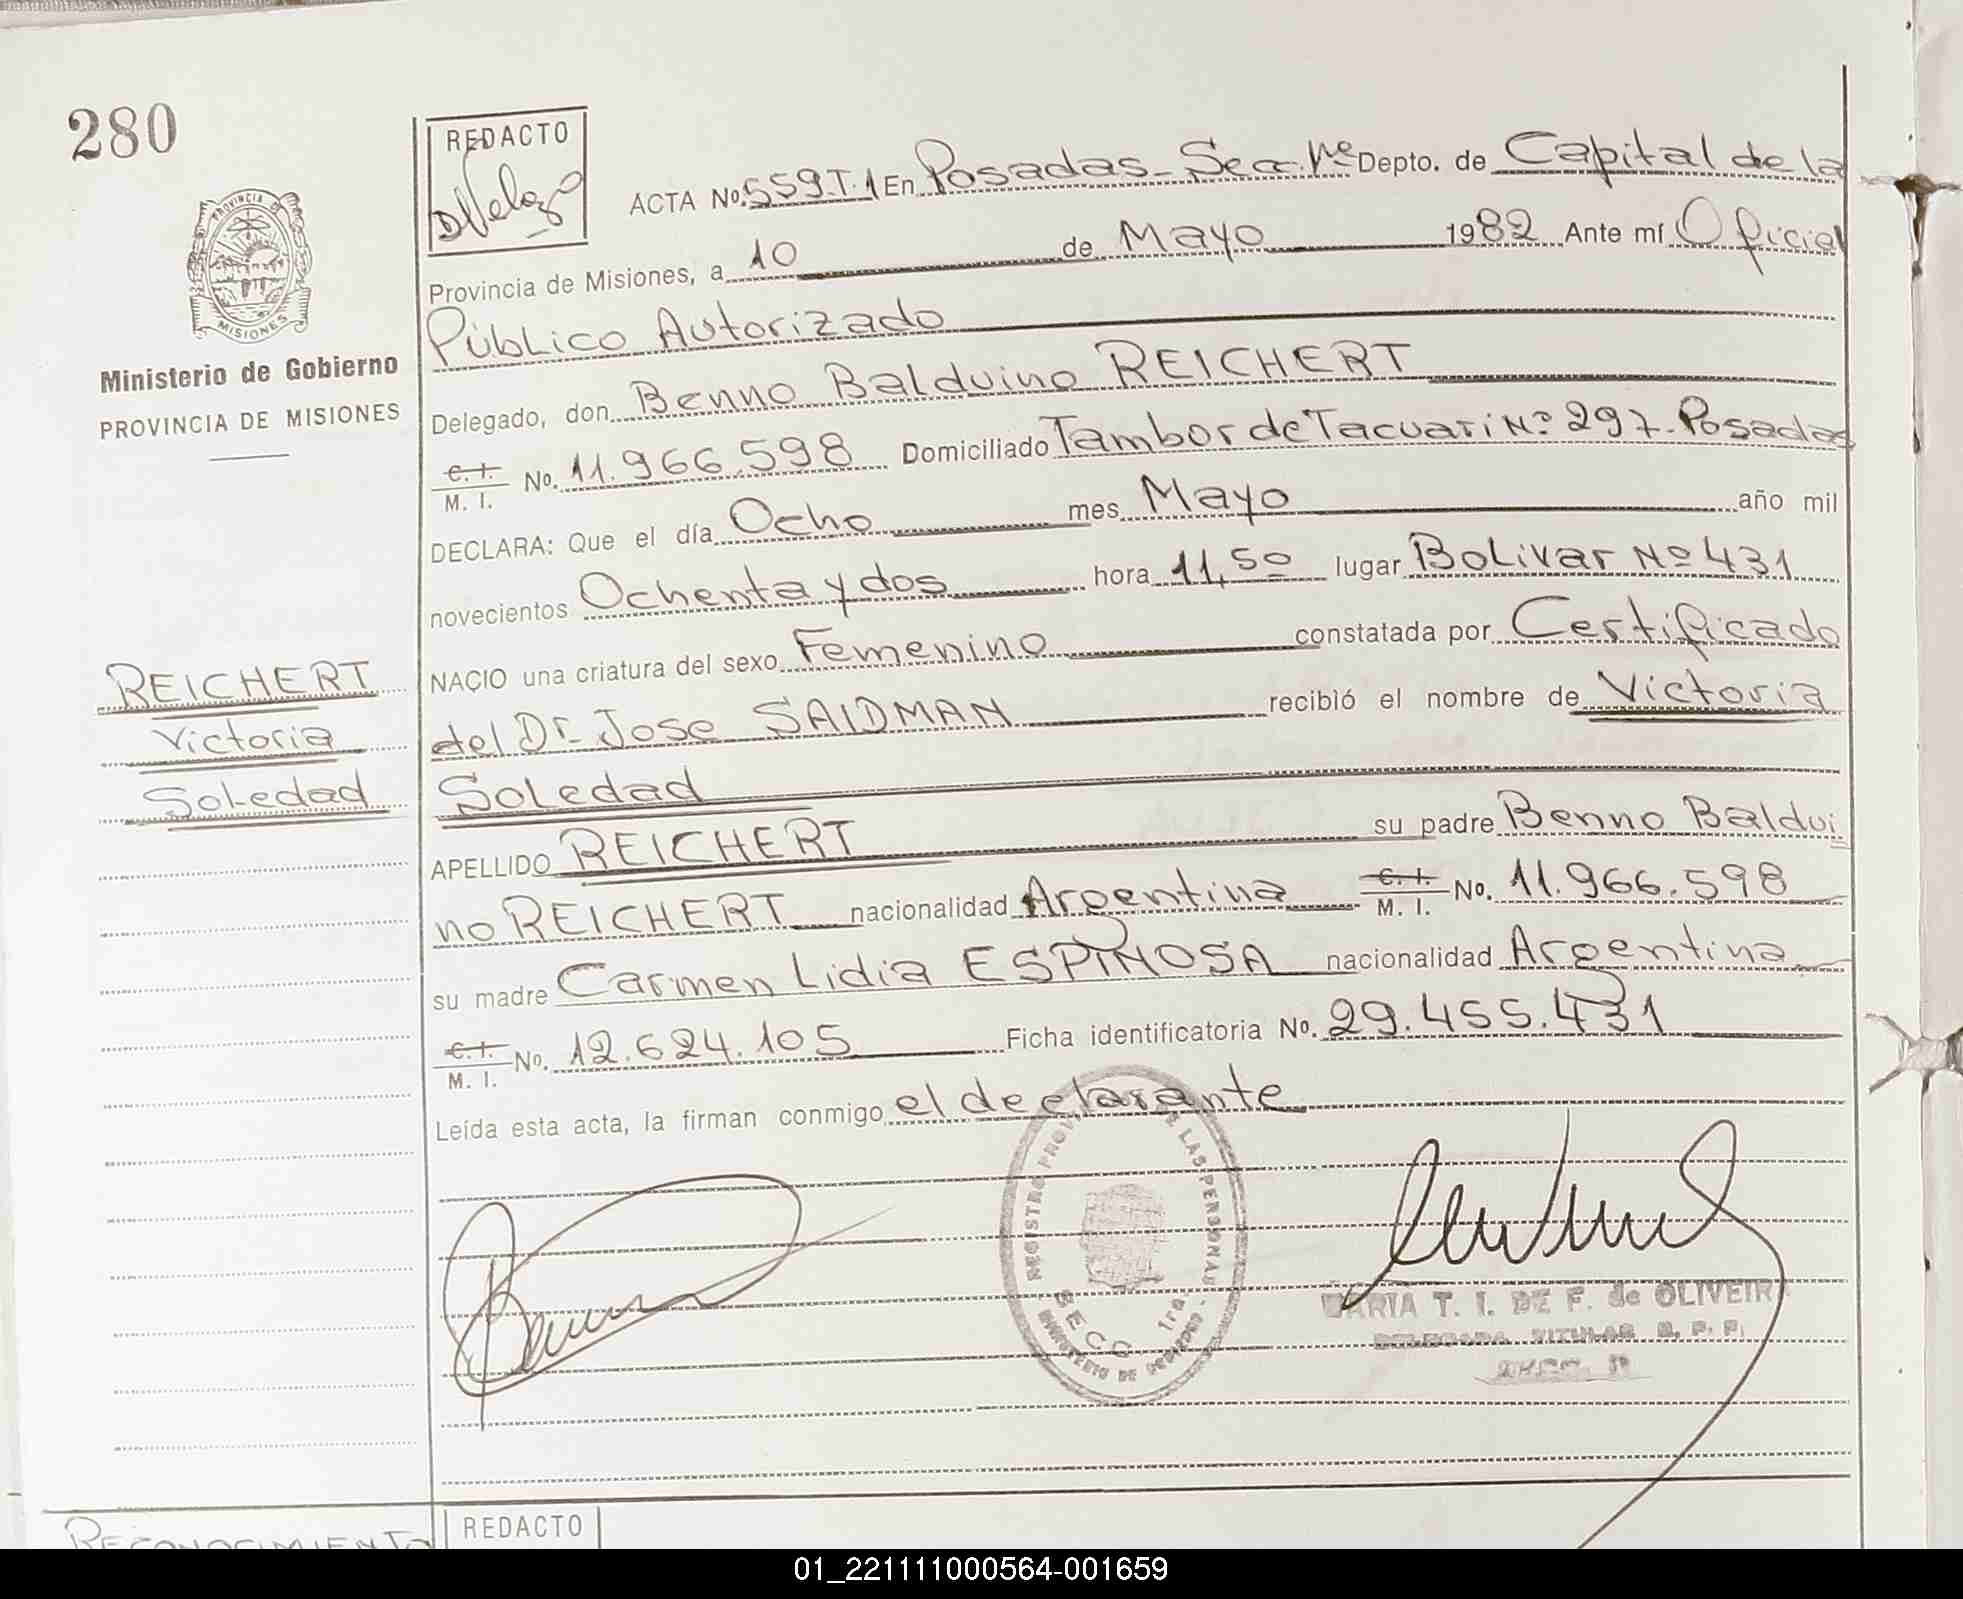 280
PROVINCIA DE
MISIONES
Ministerio de Gobierno
PROVINCIA DE MISIONES
REICHERT
Victoria
Soledad
REDACTO
DVelozo
ACTA No. 559.T.1 En Posadas - Secc. 1ra Depto. de Capital de la
Provincia de Misiones, a 10 de Mayo 1982 Ante mí Oficial
Público Autorizado
Delegado, don Benno Balduino REICHERT
C. I. M. I. No. 11.966.598 Domiciliado Tambor de Tacuari Nº 297 - Posadas
DECLARA: Que el día Ocho mes Mayo año mil
novecientos Ochenta y dos hora 11,50 lugar Bolivar Nº 431
NACIO una criatura del sexo Femenino constatada por Certificado
del Dr. Jose SAIDMAN recibió el nombre de Victoria
Soledad
APELLIDO REICHERT su padre Benno Baldui
no REICHERT nacionalidad Argentina C. I. M. I. No. 11.966.598
su madre Carmen Lidia ESPINOSA nacionalidad Argentina
C. I. M. I. No. 12.624.105 Ficha identificatoria No. 29.455.431
Leída esta acta, la firman conmigo el declarante
REGISTRO PROV. DE LAS PERSONAS
SECC. 1ra.
MINISTERIO DE GOBIERNO
MARIA T. I. DE F. de OLIVEIRA
DELEGADA TITULAR R. P. P.
RECONOCIMIENTO
REDACTO
01_221111000564-001659